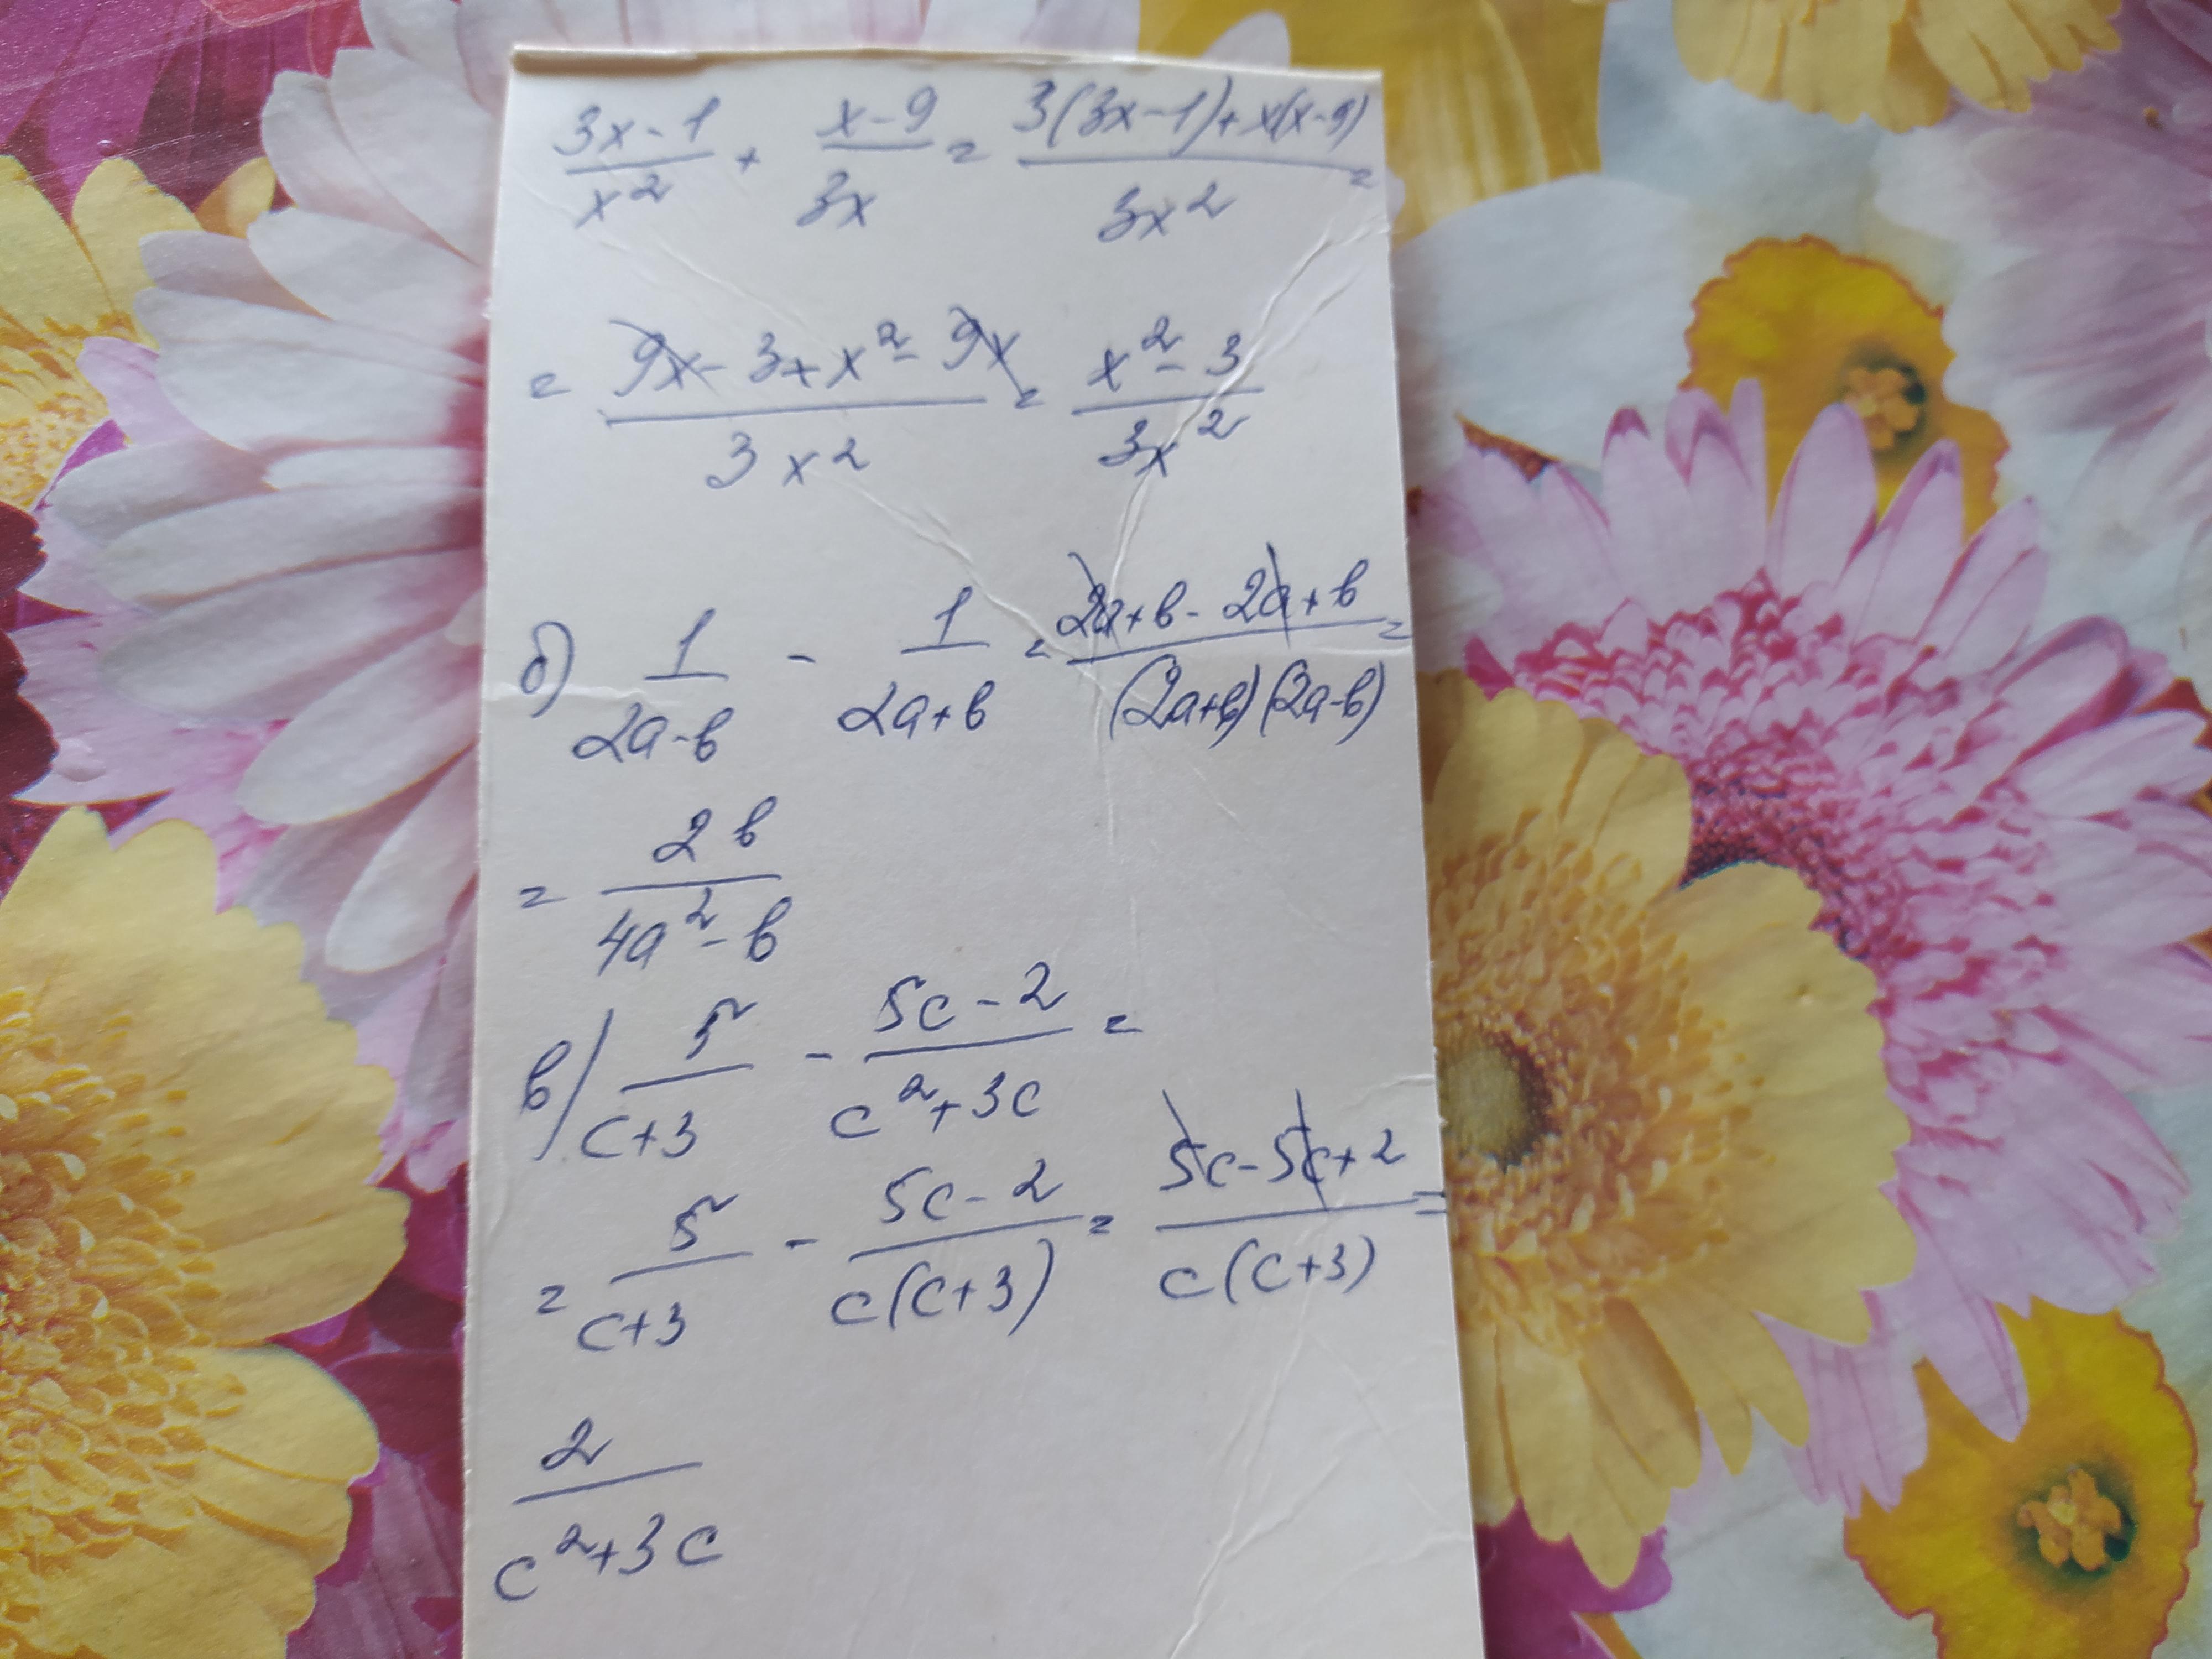 3x-1/x² + x-9/3x = 3(3x-1)+x(x-9)/3x² =
= 9x-3+x²-9x/3x² = x²-3/3x²
б) 1/2a-b - 1/2a+b = 2a+b-2a+b/(2a+b)(2a-b) =
= 2b/4a²-b
в) 5/c+3 - 5c-2/c²+3c =
= 5/c+3 - 5c-2/c(c+3) = 5c-5c+2/c(c+3) =
2/c²+3c